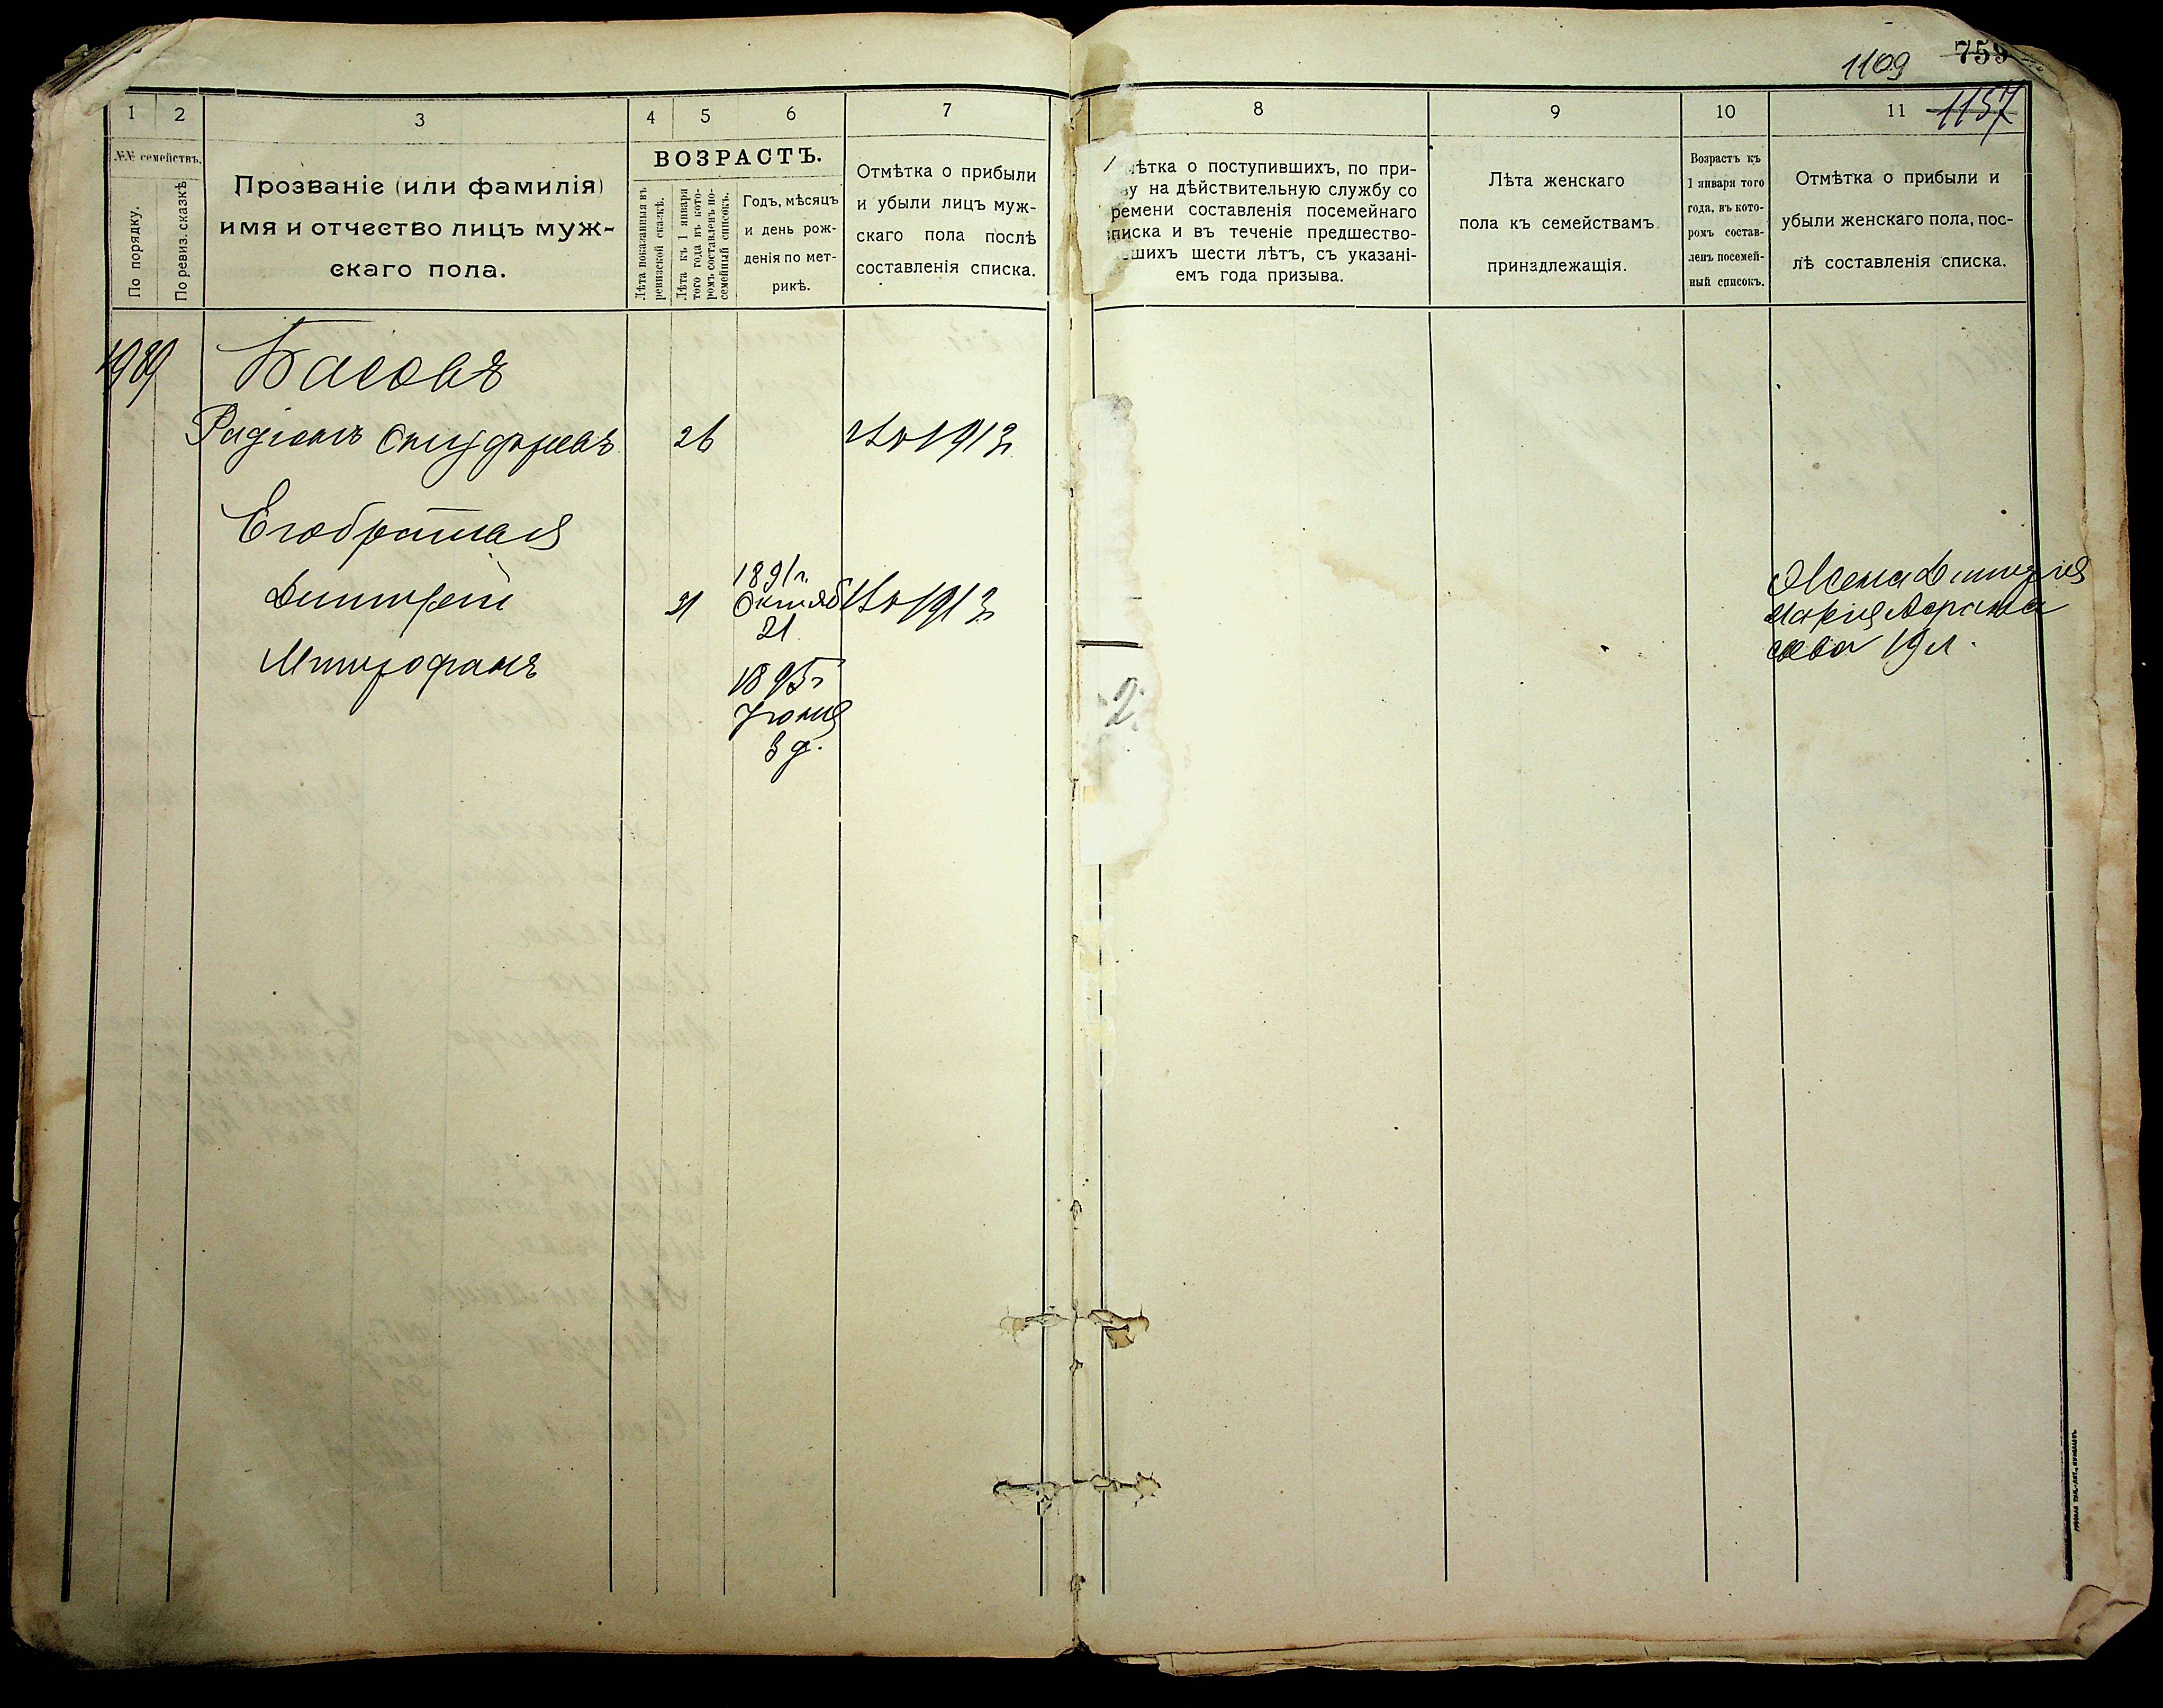 1109 759
1157
1
2
3
4
5
6
7
8
9
10
11
№№ семействъ.
По порядку.
По ревиз. сказкѣ
Прозваніе (или фамилія)
имя и отчество лицъ муж-
скаго пола.
ВОЗРАСТЪ.
Лѣта показанныя въ
ревизской сказкѣ.
Лѣта къ 1 января
того года въ кото-
ромъ составленъ по-
семейный списокъ.
Годъ, мѣсяцъ
и день рож-
денія по мет-
рикѣ.
Отмѣтка о прибыли
и убыли лицъ муж-
скаго пола послѣ
составленія списка.
ѣтка о поступившихъ, по при-
ву на дѣйствительную службу со
ремени составленія посемейнаго
писка и въ теченіе предшество-
вшихъ шести лѣтъ, съ указані-
емъ года призыва.
Лѣта женскаго
пола къ семействамъ
принадлежащія.
Возрастъ къ
1 января того
года, въ кото-
ромъ состав-
ленъ посемей-
ный списокъ.
Отмѣтка о прибыли и
убыли женскаго пола, пос-
лѣ составленія списка.
1989 Басовъ
Радіонъ 26 1913
Его братья
1891 г.
Дмитрій 21 Октяб 1913
21
Митрофанъ 1895 г
Іюня
3 д.
Жена Дмитрія
Марія
19 л.
2